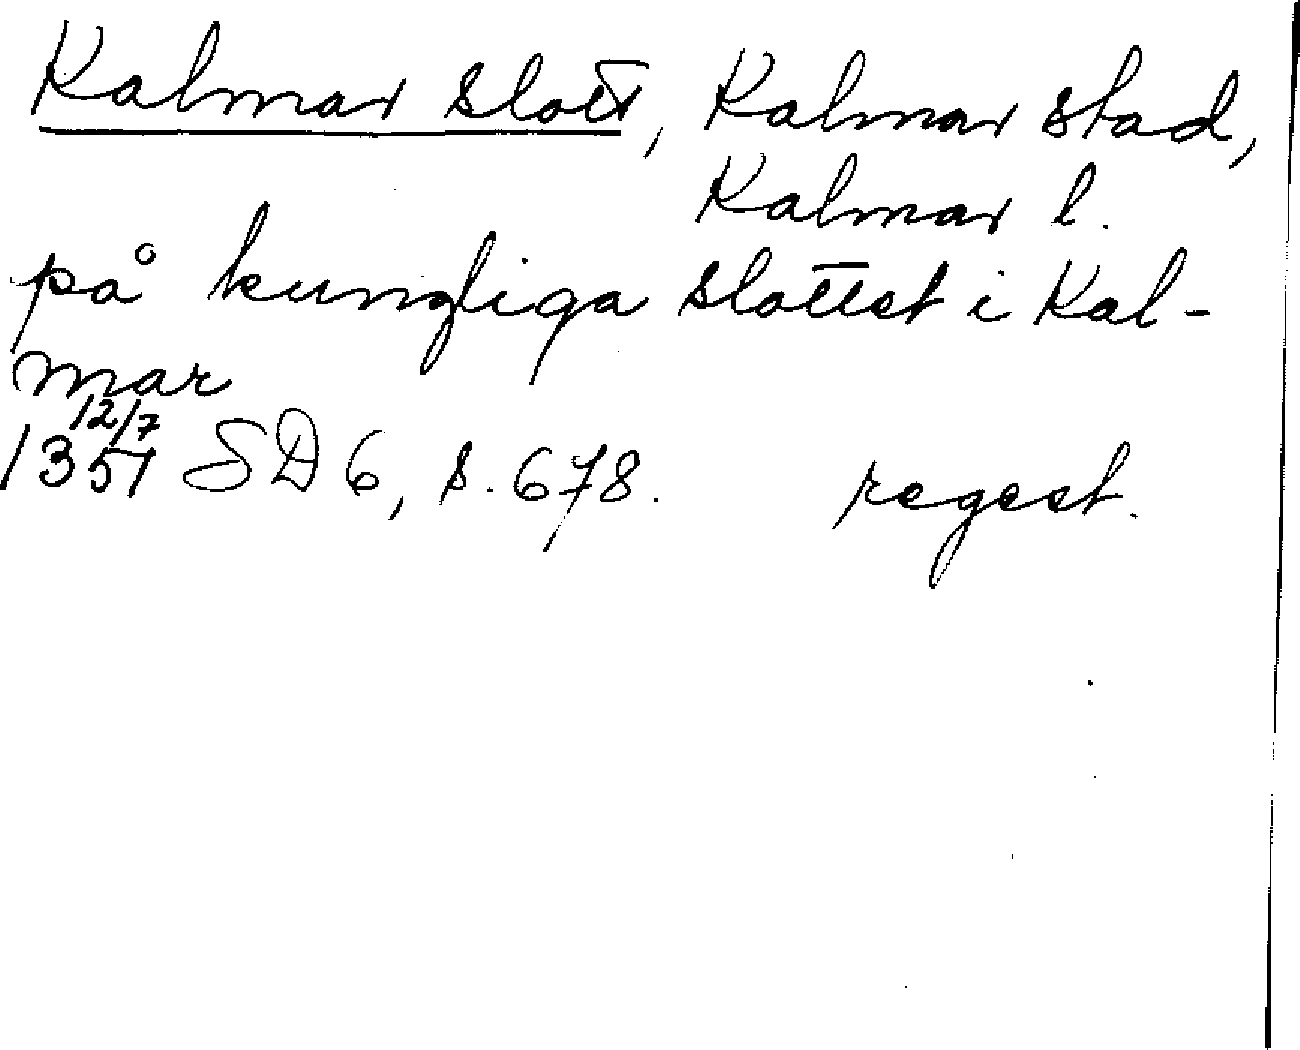 Kalmar slott, Kalmar stad,
Kalmar l.
på kungliga slottet i Kal-
mar
12/7
1357 SD 6, s. 678. regest.